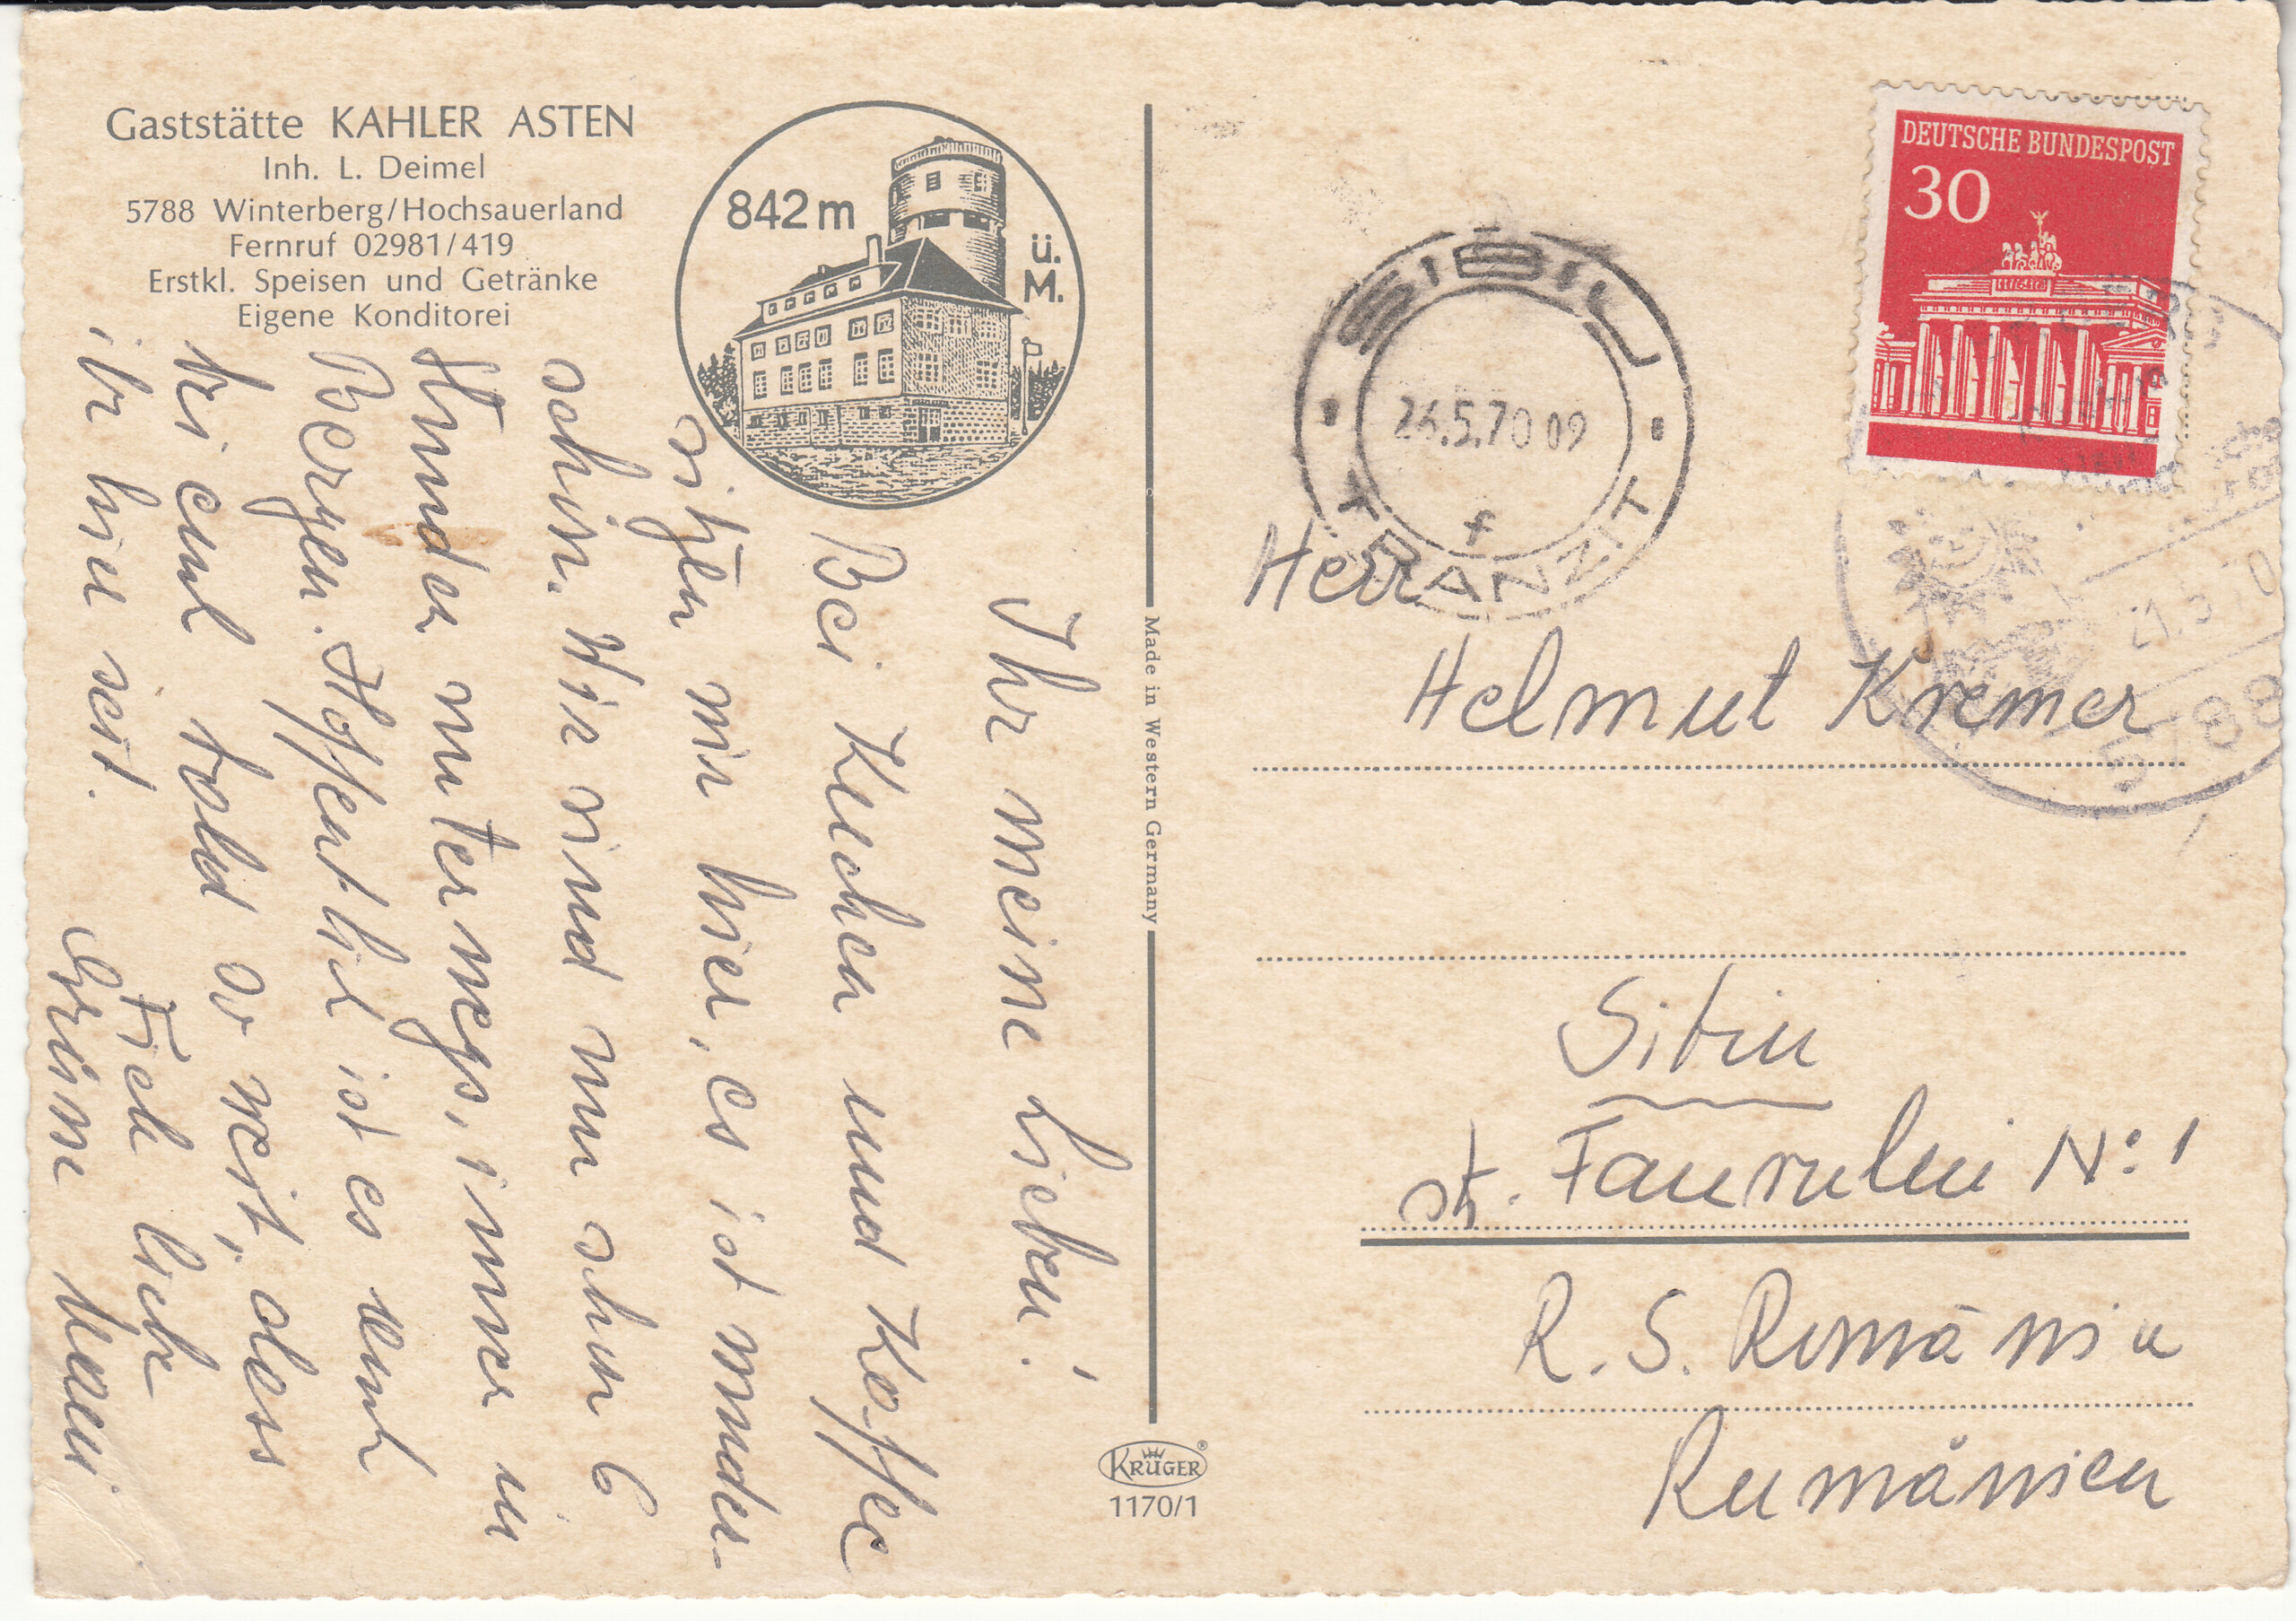 Gaststätte KAHLER ASTEN
Inh. L. Deimel
5788 Winterberg/Hochsauerland
Fernruf 02981/419
Erstkl. Speisen und Getränke
Eigene Konditorei
842 m
ü.
M.
Ihr meine Lieben!
Bei Kuchen und Kaffee
sitzen wir hier, es ist wunder-
schön. Wir sind nun schon 6
Stunden unterwegs, immer in
Bergen. Hoffentlich ist es auch
bei euch bald so weit, dass
ihr hier seit.
Viele liebe
Grüsse
Made in Western Germany
KRÜGER
1170/1
DEUTSCHE BUNDESPOST
30
SIBIU
26.5.70 09
f
TRANZIT
Herrn
Helmut Kremer
Sibiu
st. Faurului No: 1
R. S. România
Rumänien